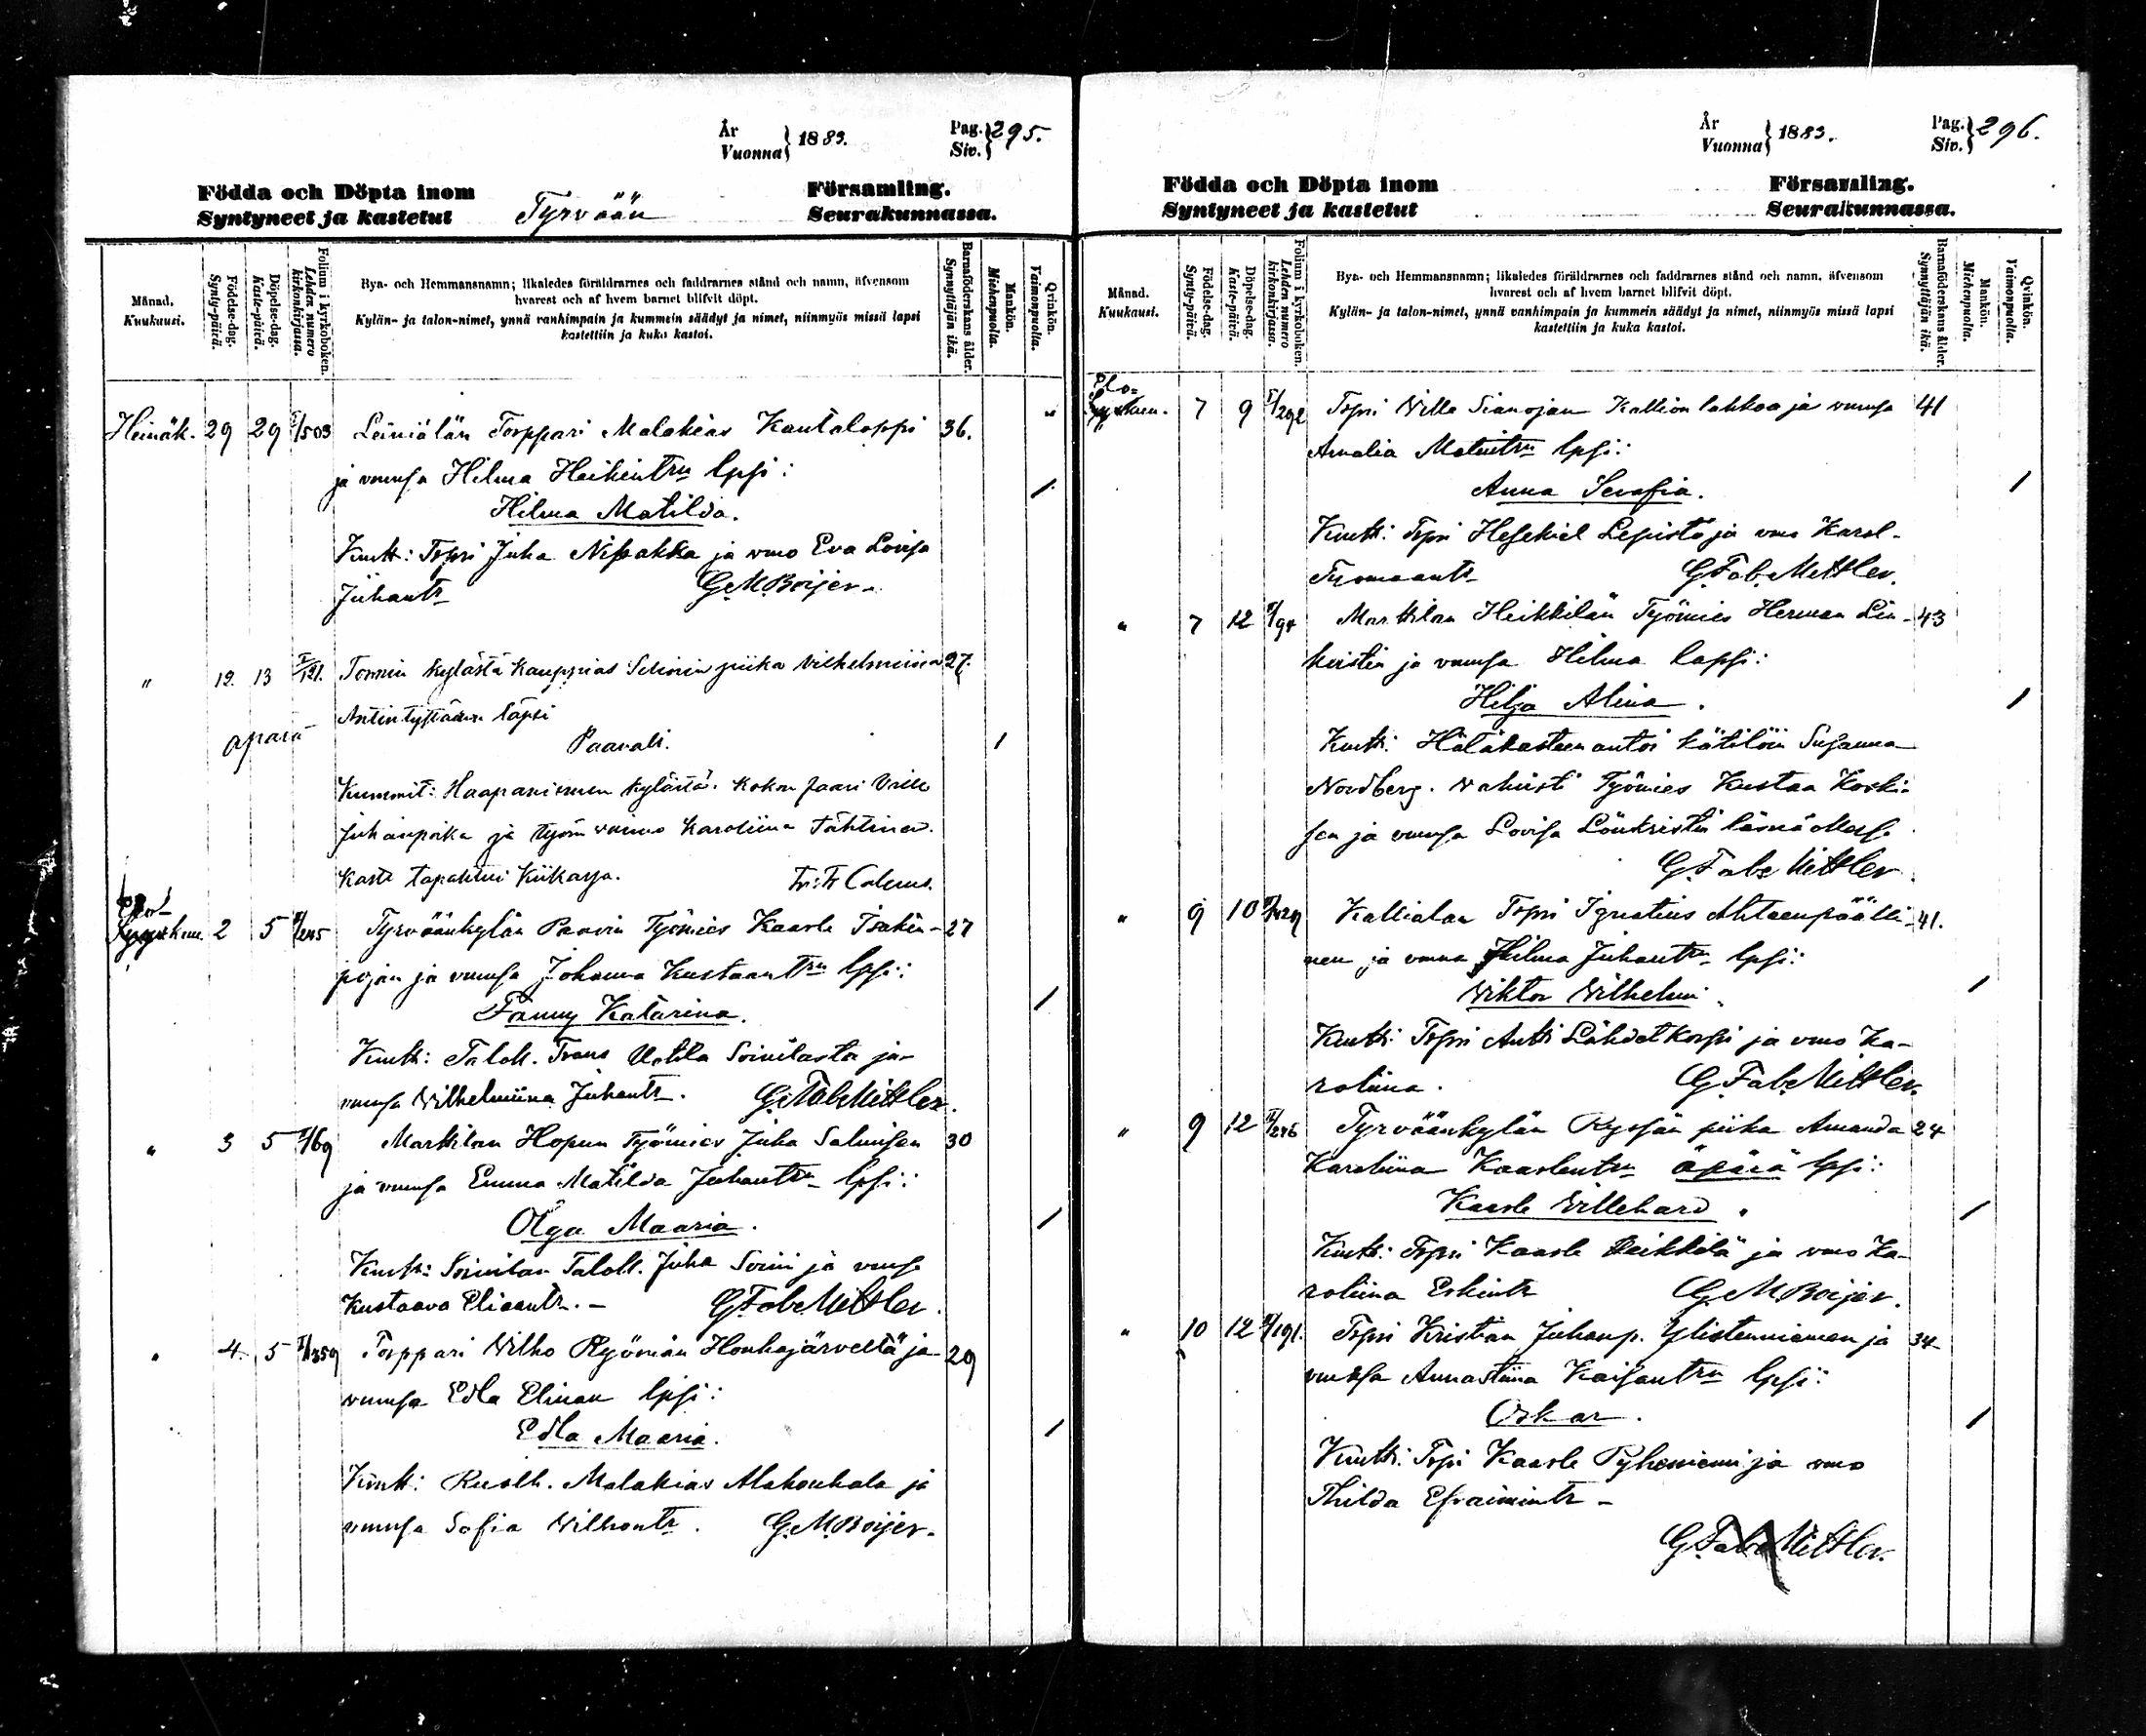 År
Vuonna} 1883.
Pag.
Siv.} 295.
Födda och Döpta inom
Syntyneet ja kastetut
Tyrvään
Församling.
Seurakunnassa.
Månad.
Kuukausi.
Födelse-dag.
Synty-päivä.
Döpelse-dag.
Kaste-päivä.
Folium i kyrkoboken.
Lehden numero
kirkonkirjassa.
Bya- och Hemmansnamn; likaledes föräldrarnes och faddrarnes stånd och namn, äfvensom
hvarest och af hvem barnet blifvit döpt.
Kylän- ja talon-nimet, ynnä vanhimpain ja kummein säädyt ja nimet, niinmyös missä lapsi
kastettiin ja kuka kastoi.
Barnaföderskans ålder.
Synnyttäjän ikä.
Mankön.
Miehenpuolta.
Qvinkön.
Vaimonpuolta.
Heinäk. 29 29 I/503 Leiniälän Torppari Malakias Kantaloppi 36.
ja vmnsa Hilma Heikintrn lpsi:
Hilma Matilda. /
Kmtt: Tppri Juha Nipakka ja vmo Eva Lovisa
Juhantr G.M.Boijer.
" 12. 13 I/121. Tornin kylästä Kauppias Selinin piika Vilhelmiina 27.
Antintyttären lapsi
äpärä
Paavali. 1
Kummit: Haapaniemen kylästä. Kokon Jaari Ville
Juhanpoika ja työm vaimo Karoliina Tähtinen.
Kaste tapahtui Kiikassa. Fr: Fr Calenus.
Elo-
Syyskuu. 2 5 II/245 Tyrväänkylän Paavin Työmies Kaarle Isakin- 27
pojan ja vmnsa Johanna Kustaantrn lpsi:
Fanny Katarina. /
Kmtt: Taloll. Frans Uotila Soinilasta ja
vmnsa Wilhelmiina Juhantr. G.FabeMittler.
" 3 5 I/69 Marttilan Hopun Työmies Juha Salmisen 30
ja vmnsa Emma Matilda Juhantrn lpsi:
Olga Maaria. /
Kmtt: Soinilan Taloll. Juha Soini ja vmnsa
Kustaava Eliaantr. – G.FabeMittler.
" 4. 5 I/359 Torppari Wilho Ryömän Houhajärveltä ja 29
vmnsa Edla Elinan lpsi:
Edla Maaria. /
Kmtt: Rusth. Malakias Alahouhala ja
vmnsa Sofia Wilhontr. G.M.Boijer.
År
Vuonna} 1883.
Pag.
Siv.} 296.
Födda och Döpta inom
Syntyneet ja kastetut
Församling.
Seurakunnassa.
Månad.
Kuukausi.
Födelse-dag.
Synty-päivä.
Döpelse-dag.
Kaste-päivä.
Folium i kyrkoboken.
Lehden numero
kirkonkirjassa.
Bya- och Hemmansnamn; likaledes föräldrarnes och faddrarnes stånd och namn, äfvensom
hvarest och af hvem barnet blifvit döpt.
Kylän- ja talon-nimet, ynnä vanhimpain ja kummein säädyt ja nimet, niinmyös missä lapsi
kastettiin ja kuka kastoi.
Barnaföderskans ålder.
Synnyttäjän ikä.
Mankön.
Miehenpuolta.
Qvinkön.
Vaimonpuolta.
Elo-
Syyskuu. 7 9 I/292 Tppri Wille Sianojan Kallion lohkoa ja vmnsa 41
Amalia Matintrn lpsi:
Anna Serafia. /
Kmtt: Tppri Hesekiel Lepistö ja vmo Karol.
Tuomaantr G.FabeMittler.
" 7 12 I/94 Marttilan Heikkilän Työmies Herman Lin- 43
kristin ja vmnsa Hilma lapsi:
Hilja Alina. /
Kmtt: Hätäkasteen antoi kätilöin Susanna
Nordberg. Vahvisti Työmies Kustaa Koski-
sen ja vmnsa Lovisa Lönkristin läsnäollessa
G.FabeMittler.
" 9 10 II/429 Kallialan Tppri Ignatius Ahtaenpäälli- 41.
nen ja vmnsa Hilma Juhantrn lpsi:
Wiktor Wilhelmi. /
Kmtt: Tppri Antti Lähdetkorpi ja vmo Ka-
roliina. G.FabeMittler.
" 9 12 II/246 Tyrväänkylän Ryssän piika Amanda 24
Karoliina Kaarlentrn äpärä lpsi:
Kaarle Willehard. /
Kmtt: Tppri Kaarle Heikkilä ja vmo Ka-
roliina Erkintr G.M.Boijer.
" 10 12 II/191. Tppri Kristian Juhanp. Ylistenniemen ja 34
vmnsa Annastiina Kaisantrn lpsi:
Oskar. /
Kmtt: Tppri Kaarle Pyheniemi ja vmo
Thilda Efraimintr –
G.FabeMittler.